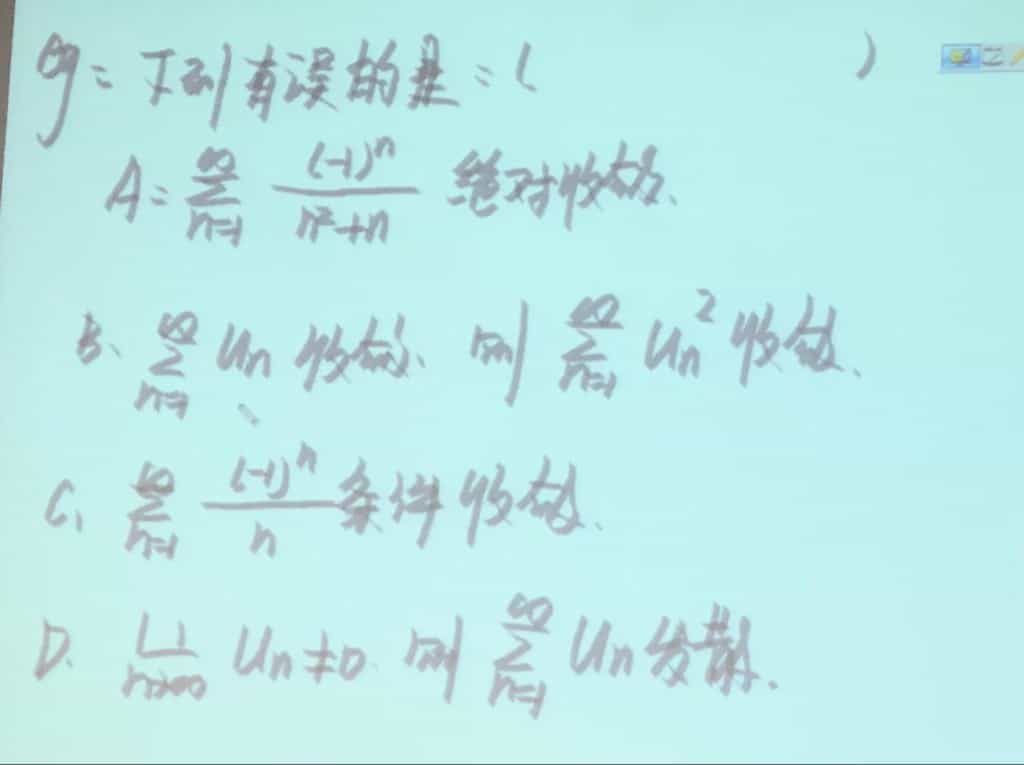 eg: 下列有误的是:( )
A: \sum_{n=1}^{\infty} \frac{(-1)^n}{n^2+n} 绝对收敛.
B、\sum_{n=1}^{\infty} u_n 收敛、则 \sum_{n=1}^{\infty} u_n^2 收敛、
C、\sum_{n=1}^{\infty} \frac{(-1)^n}{n} 条件收敛、
D. \lim_{n→∞} u_n≠0. 则 \sum_{n=1}^{\infty} u_n 发散.